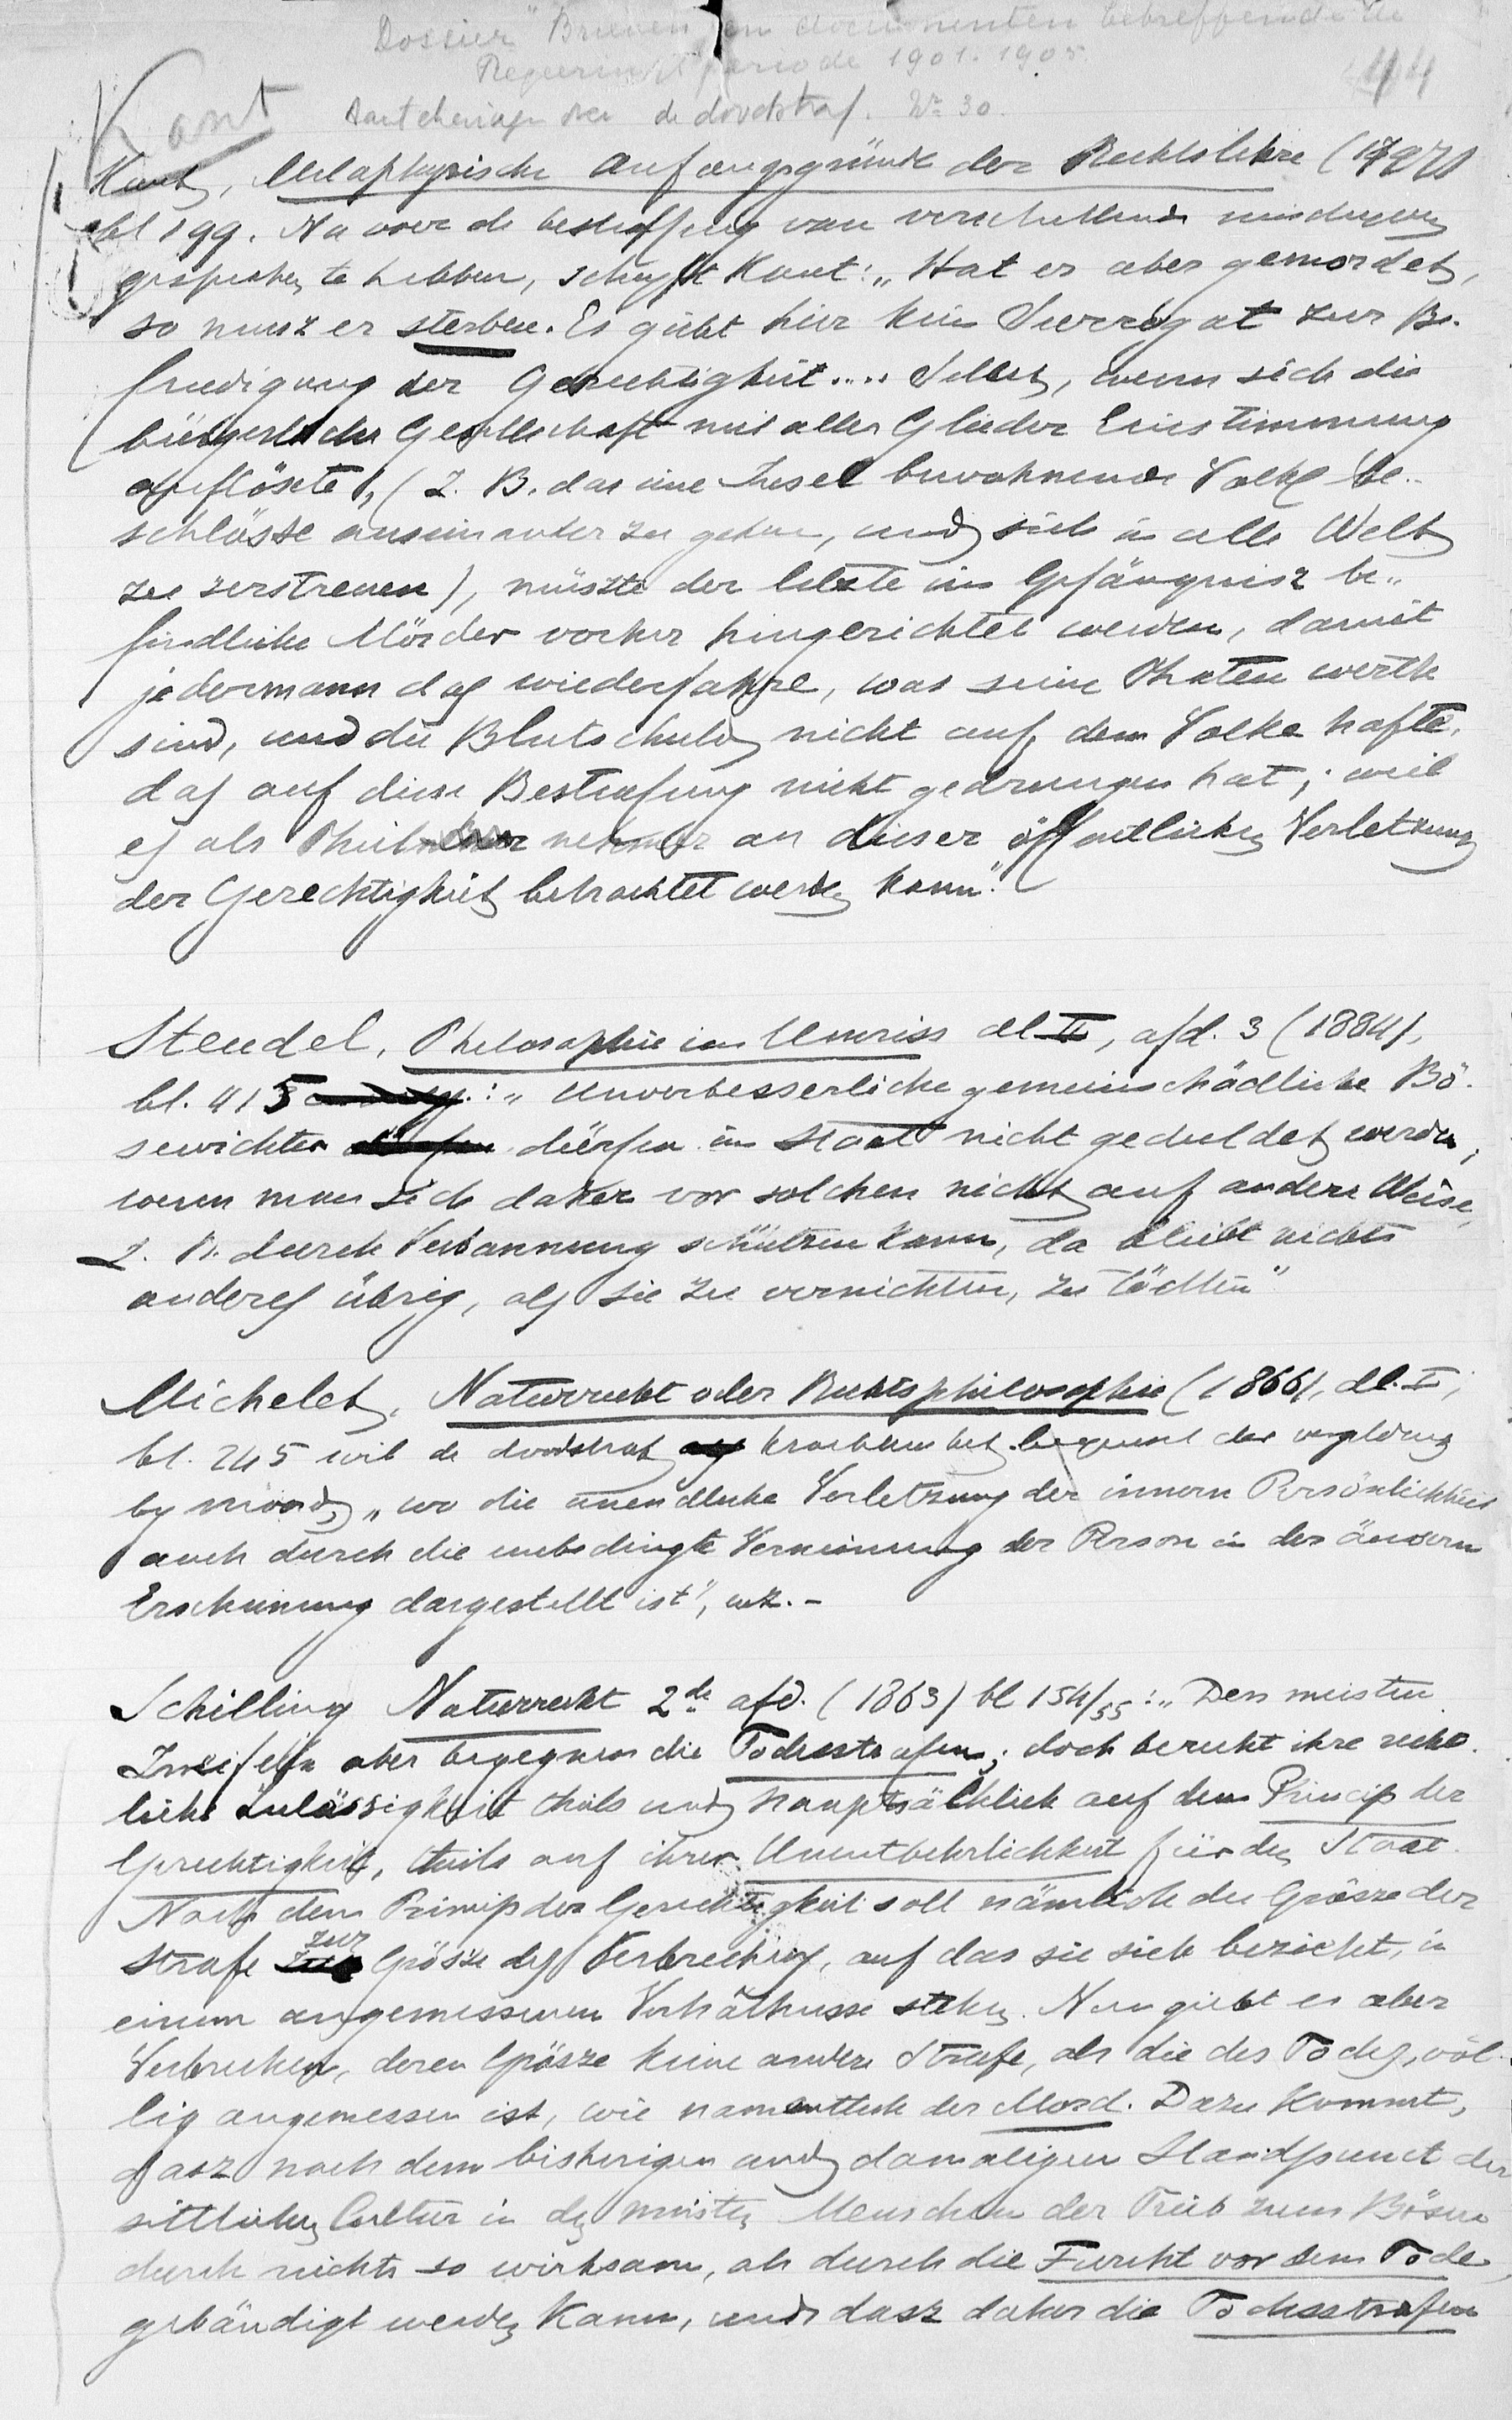 Dossier "Brieven en documenten betreffende de
Regeeringsperiode 1901-1905
44
Kant
Aanteekeningen over de doodstraf. No 30.
Kant, Metaphysische Anfangsgründe der Rechtslehre (1797)
bl 199. Na over de bestraffing van verschillende misdrijven
gesproken te hebben, schrijft Kant: "Hat er aber gemordet,
so musz er sterben. Es giebt hier kein Surrogat zur Be-
friedigung der Gerechtigkeit.... Selbst, wenn sich die
bürgerliche Gesellschaft mit aller Glieder Einstimmung
auflösete, (z. B. das eine Insel bewohnende Volk be-
schlösse auseinander zu gehen, und sich in alle Welt
zu zerstreuen), müszte der letzte im Gefängnisz be-
findliche Mörder vorher hingerichtet werden, damit
jedermann das wiederfahre, was seine Thaten werth
sind, und die Blutschuld nicht auf dem Volke hafte,
das auf diese Bestrafung nicht gedrungen hat; weil
es als Theilnehmer an dieser öffentlichen Verletzung
der Gerechtigkeit betrachtet werden kann".
Steudel, Philosophie im Umriss dl II, afd. 3 (1884),
bl. 415: "Unverbesserliche gemeinschädliche Bö-
sewichter dürfen im Staat nicht geduldet werden;
wenn man sich daher vor solchen nicht auf andere Weise,
z. B. durch Verbannung schützen kann, da bleibt nichts
anderes übrig, als sie zu vernichten, zu tödten"
Michelet, Naturrecht oder Rechtsphilosophie (1866), dl. I,
bl. 245 wil de doodstraf krachtens het beginsel der vergelding
by moord, "wo die unendliche Verletzung der innern Persönlichkeit
auch durch die unbedingte Verneinung der Person in der äussern
Erscheinung dargestellt ist", enz. -
Schilling Naturrecht 2de afd. (1863) bl 154/55: "Den meisten
Zweifeln aber begegnen die Todesstrafen; doch beruht ihre recht-
liche Zulässigkeit theils und hauptsächlich auf dem Princip der
Gerechtigkeit, theils auf ihrer Unentbehrlichkeit für den Staat.
Nach dem Princip der Gerechtigkeit soll nämlich die Grösze der
Strafe zur Grösze des Verbrechens, auf das sie sich bezieht, in
einem angemessenen Verhältnisse stehen. Nun giebt es aber
Verbrechen, deren Grösze keine andere Strafe, als die des Todes, völ-
lig angemessen ist, wie namentlich der Mord. Dazu kommt,
dasz nach dem bisherigen und damaligen Standpunct der
sittlichen Cultur in den meisten Menschen der Trieb zum Bösen
durch nichts so wirksam, als durch die Furcht vor dem Tode,
gebändigt werden kann, und dasz daher die Todesstrafen